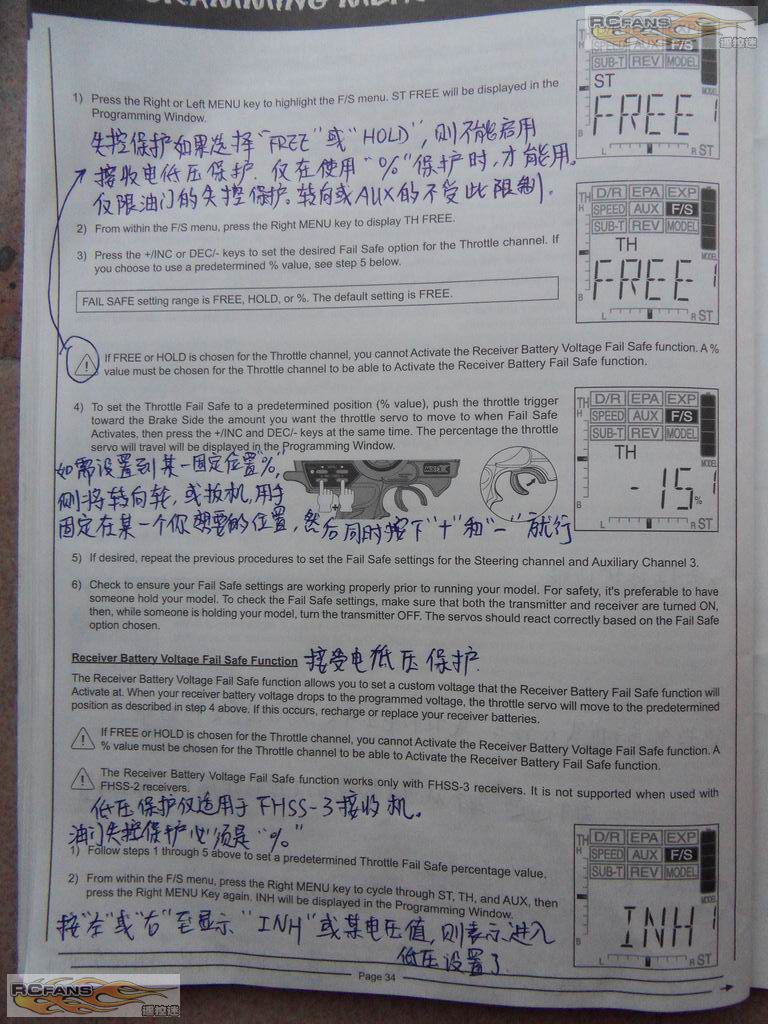 RCFANS
遥控迷
TH
D/R EPA EXP
SPEED AUX F/S
SUB-T REV MODEL
ST
FREE
1
MODEL
B
L R ST
1) Press the Right or Left MENU key to highlight the F/S menu. ST FREE will be displayed in the
Programming Window.
失控保护如果选择“FREE”或“HOLD”,则不能启用
接收电低压保护. 仅在使用“%”保护时,才能用.
仅限油门的失控保护。转向或AUX的不受此限制.
2) From within the F/S menu, press the Right MENU key to display TH FREE.
3) Press the +/INC or DEC/- keys to set the desired Fail Safe option for the Throttle channel. If
you choose to use a predetermined % value, see step 5 below.
FAIL SAFE setting range is FREE, HOLD, or %. The default setting is FREE.
TH
H
D/R EPA EXP
SPEED AUX F/S
SUB-T REV MODEL
TH
FREE
1
MODEL
B
L R ST
If FREE or HOLD is chosen for the Throttle channel, you cannot Activate the Receiver Battery Voltage Fail Safe function. A %
value must be chosen for the Throttle channel to be able to Activate the Receiver Battery Fail Safe function.
4) To set the Throttle Fail Safe to a predetermined position (% value), push the throttle trigger
toward the Brake Side the amount you want the throttle servo to move to when Fail Safe
Activates, then press the +/INC and DEC/- keys at the same time. The percentage the throttle
servo will travel will be displayed in the Programming Window.
如需设置到某一固定位置“%”,
则将转向轮,或扳机,用手
固定在某一个你想要的位置,然后同时按下“+”和“-”就行
TH
H
D/R EPA EXP
SPEED AUX F/S
SUB-T REV MODEL
TH
-15%
1
MODEL
B
L R ST
5) If desired, repeat the previous procedures to set the Fail Safe settings for the Steering channel and Auxiliary Channel 3.
6) Check to ensure your Fail Safe settings are working properly prior to running your model. For safety, it's preferable to have
someone hold your model. To check the Fail Safe settings, make sure that both the transmitter and receiver are turned ON,
then, while someone is holding your model, turn the transmitter OFF. The servos should react correctly based on the Fail Safe
option chosen.
Receiver Battery Voltage Fail Safe Function 接受电低压保护.
The Receiver Battery Voltage Fail Safe function allows you to set a custom voltage that the Receiver Battery Fail Safe function will
Activate at. When your receiver battery voltage drops to the programmed voltage, the throttle servo will move to the predetermined
position as described in step 4 above. If this occurs, recharge or replace your receiver batteries.
If FREE or HOLD is chosen for the Throttle channel, you cannot Activate the Receiver Battery Voltage Fail Safe function. A
% value must be chosen for the Throttle channel to be able to Activate the Receiver Battery Fail Safe function.
The Receiver Battery Voltage Fail Safe function works only with FHSS-3 receivers. It is not supported when used with
FHSS-2 receivers.
低压保护仅适用于FHSS-3接收机.
油门失控保护必须是“%”
1) Follow steps 1 through 5 above to set a predetermined Throttle Fail Safe percentage value.
2) From within the F/S menu, press the Right MENU key to cycle through ST, TH, and AUX, then
press the Right MENU Key again. INH will be displayed in the Programming Window.
按“左”或“右”至显示“INH”或某电压值,则表示进入
低压设置了
TH
H
D/R EPA EXP
SPEED AUX F/S
SUB-T REV MODEL
INH
1
MODEL
B
L R ST
Page 34
RCFANS
遥控迷